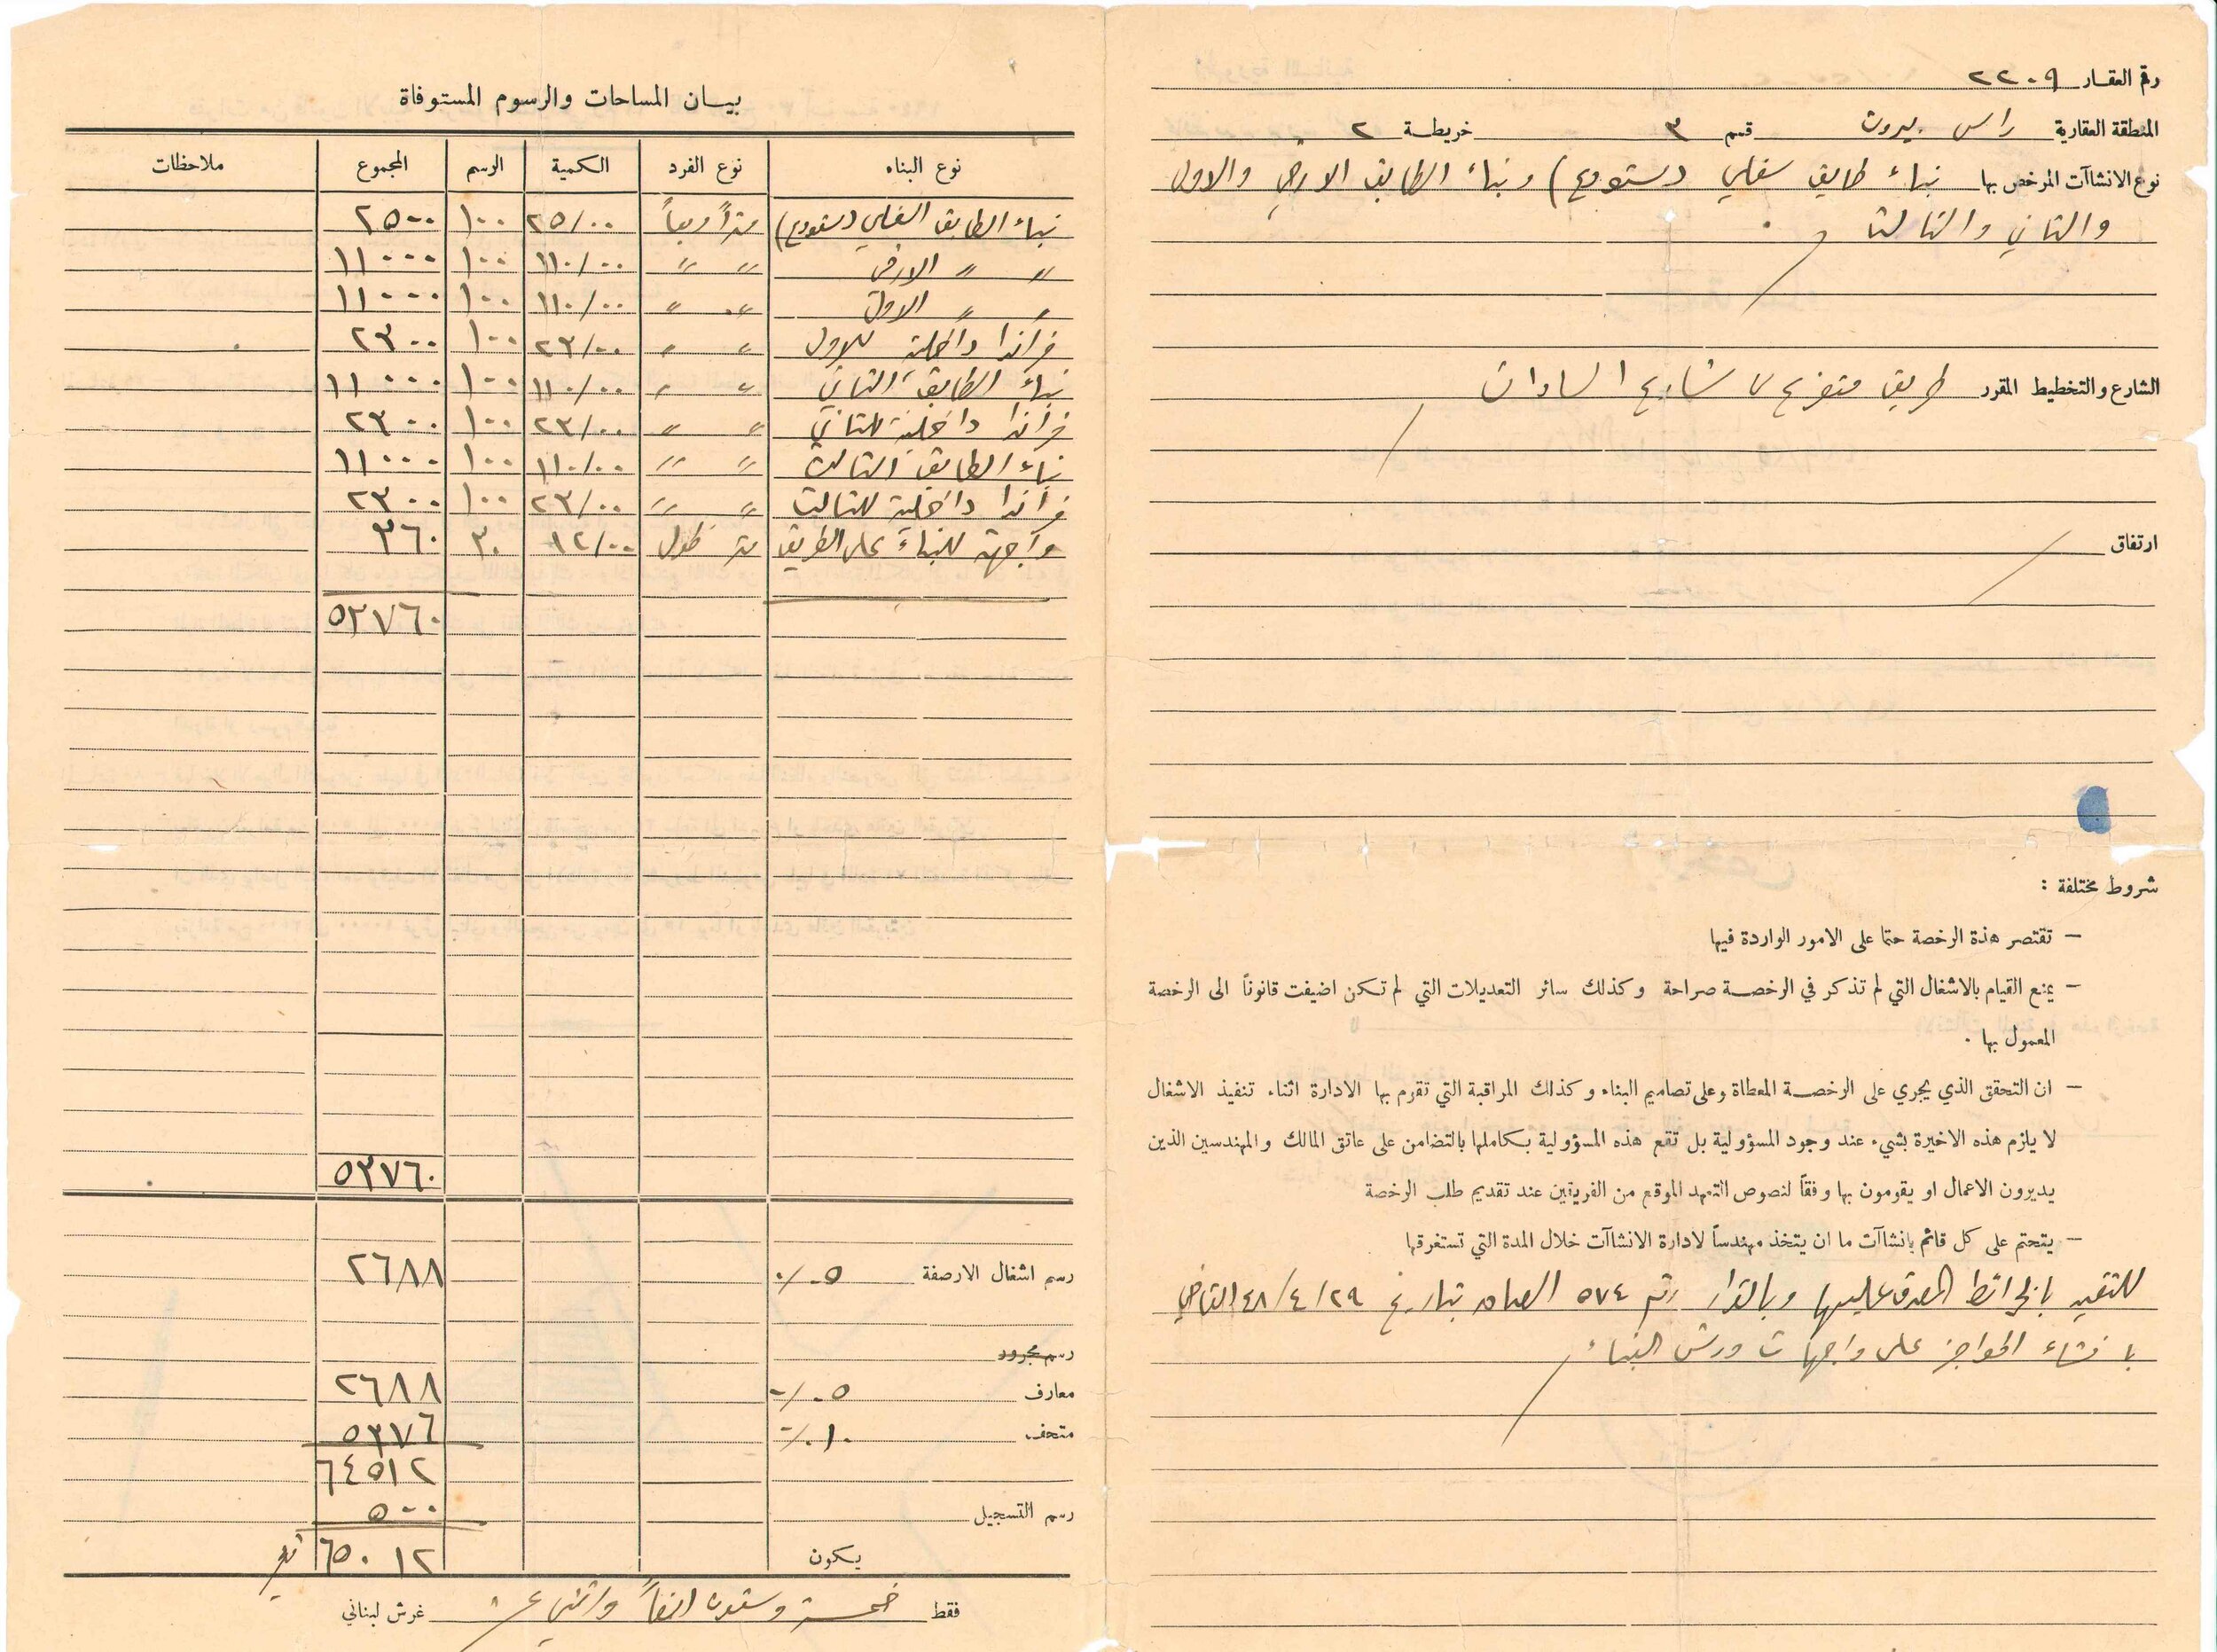 رقم العقار ٢٢٠٩
المنطقة العقارية راس بيروت قسم ٣ خريطة ٢
نوع الانشاآت المرخص بها بناء طابق سفلي (مستودع) وبناء الطابق الارضي والاول
والثاني والثالث
الشارع والتخطيط المقرر طريق متفرع من شارع السادات
ارتفاق
شروط مختلفة :
– تقتصر هذة الرخصة حتما على الامور الواردة فيها
– يمنع القيام بالاشغال التي لم تذكر في الرخصة صراحة وكذلك سائر التعديلات التي لم تكن اضيفت قانوناً الى الرخصة
المعمول بها .
– ان التحقق الذي يجري على الرخصة المعطاة وعلى تصاميم البناء وكذلك المراقبة التي تقوم بها الادارة اثناء تنفيذ الاشغال
لا يلزم هذه الاخيرة بشيء عند وجود المسؤولية بل تقع هذه المسؤولية بكاملها بالتضامن على عاتق المالك والمهندسين الذين
يديرون الاعمال او يقومون بها وفقاً لنصوص التعهد الموقع من الفريقين عند تقديم طلب الرخصة
– يتحتم على كل قائم بانشاآت ما ان يتخذ مهندساً لادارة الانشاآت خلال المدة التي تستغرقها
للتقيد بالخرائط المصدق عليها وبالقرار رقم ٥٧٤ الصادر بتاريخ ٤٨/٤/٢٩ القاضي
بانشاء الحواجز على واجهات ورش البناء
بيان المساحات والرسوم المستوفاة
نوع البناء نوع الفرد الكمية الرسم المجموع ملاحظات
بناء الطابق السفلي (مستودع) متراً مربعاً ٢٥/٠٠ ١٠٠ ٢٥٠٠
〃 〃 الارضي 〃 〃 ١١٠/٠٠ ١٠٠ ١١٠٠٠
〃 〃 الاول 〃 〃 ١١٠/٠٠ ١٠٠ ١١٠٠٠
فراندا داخلية للاول 〃 〃 ٢٣/٠٠ ١٠٠ ٢٣٠٠
بناء الطابق الثاني 〃 〃 ١١٠/٠٠ ١٠٠ ١١٠٠٠
فراندا داخلية للثاني 〃 〃 ٢٣/٠٠ ١٠٠ ٢٣٠٠
بناء الطابق الثالث 〃 〃 ١١٠/٠٠ ١٠٠ ١١٠٠٠
فراندا داخلية للثالث 〃 〃 ٢٣/٠٠ ١٠٠ ٢٣٠٠
واجهة للبناء على الطريق متر طول ١٢/٠٠ ٣٠ ٣٦٠
٥٣٧٦٠
٥٣٧٦٠
رسم اشغال الارصفة ٠٥٪ ٢٦٨٨
رسم مجرور
معارف ٠٥٪ ٢٦٨٨
متحف ١٠٪ ٥٣٧٦
٦٤٥١٢
رسم التسجيل ٥٠٠
يكون ٦٥٠١٢
فقط خمسة وستون الفاً واثني عشر غرش لبناني